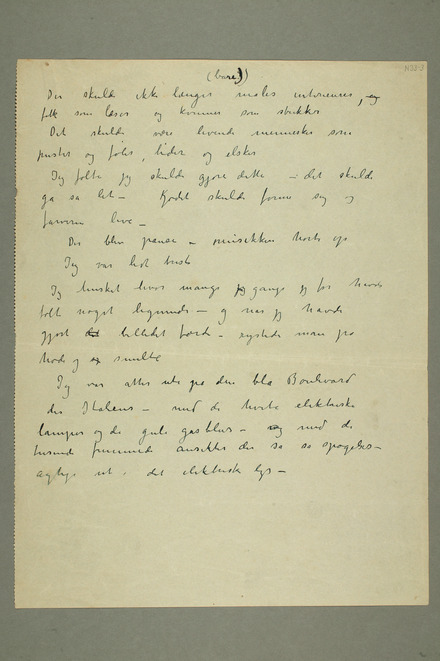 N 33-3
(bare))
Der skulde ikke længer males interieurer, og
folk som læser og kvinner som strikker
Det skulde være levende mennesker som
puster og føler, lider og elsker
Jeg følte jeg skulde gjøre dette – det skulde
gå så let – Kjødet skulde forme sig og
farverne leve –
Der blev pause – musikken hørte op
Jeg var lidt trist
Jeg husket hvor mange gange jeg før havde
følt noget lignende – og når jeg havde
gjort billedet færdi – rystede man på
hode og smilte
Jeg var atter ute på den blå Boulevard
des Italiens – med de hvite elektriske
lamper og de gule gasblus – med de
tusende fremmede ansikter der så så spøgelses–
agtige ut i det elektriske lys –